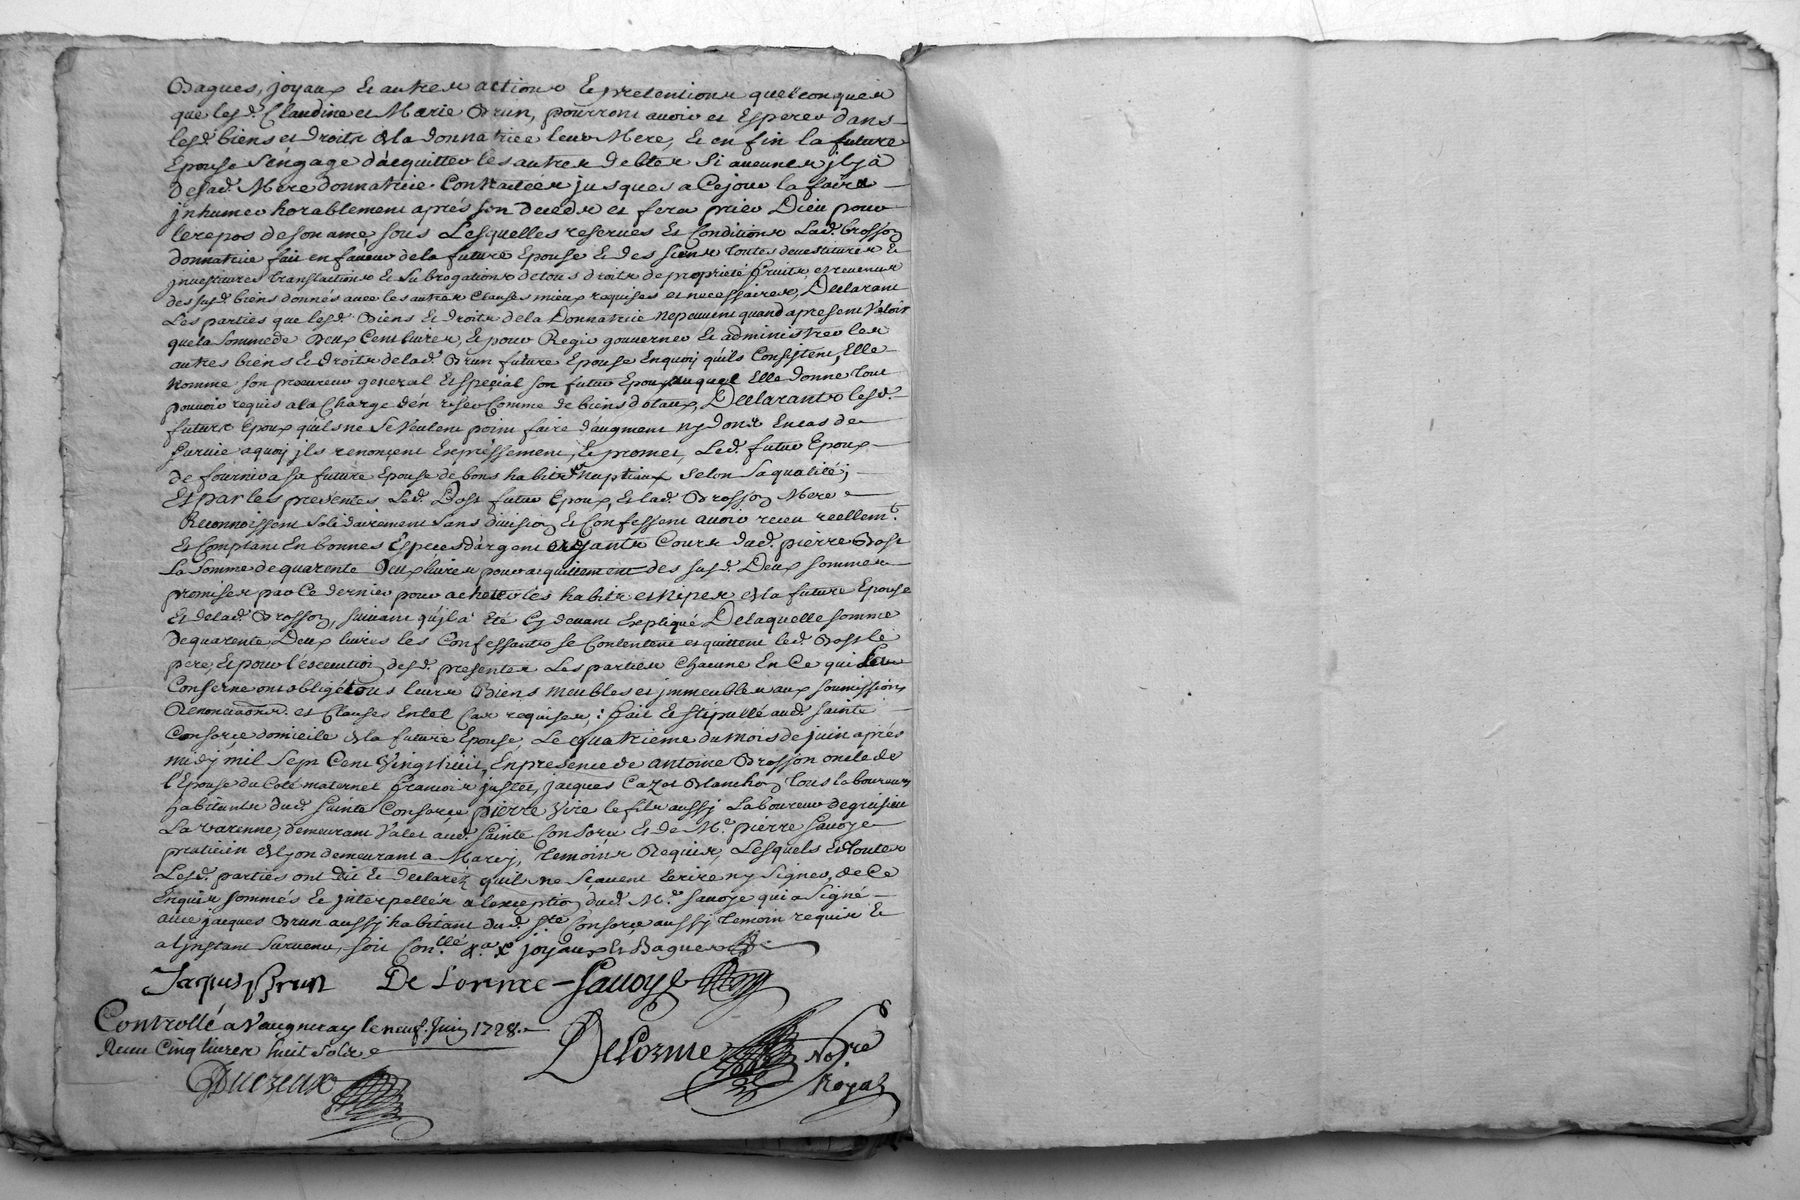 Bagues, joyaux et autres actions et pretentions quelconques
que lesd. Claudine et Marie Brun, pourront avoir et esperer dans
lesd. biens et droits de la donnatrice leur Mere, et en fin la future
Epouse s'engage d'acquitter les autres debtes si aucunes il y à
de lad. Mere donnatrice contractées jusques a ce jour la faire
jnhumer horablement aprés son decedz et fera prier Dieu pour
le repos de son ame sous Lesquelles reserves et Conditions Lad. brosson
donnatrice fait en faveur de la future Epouse et des siens toutes devestitures et
jnvestitures translactions et subrogations de tous droits de proprieté fruits et revenus
des susd. biens donnés avec les autres clauses mieux requises et necessaires, Declarant
Les parties que lesd. Biens et droits de la Donnatrice ne peuvent quand apresent Valoir
que la somme de deux Cent livres, et pour Regir gouverner et administrer les
autres biens et droits de lad. Brun future Epouse en quoy qu'ils Consistent, Elle
nomme son procureur general et special son futur Epoux auquel Elle donne tout
pouvoir requis a la Charge d'en user Comme de biens dotaux, Declarants lesd.
futurs Epoux qu'ils ne se veulent point faire d'augment ny dons en cas de
survie a quoy jls renonçent Expressement, et promet, Led. futur Epoux
de fournir a sa future Epouse de bons habits nuptiaux selon sa qualité;
Et par les presentes Led. Bost futur Epoux, et lad. Brosson Mere
Reconnoissent solidairement sans division et Confessent avoir receu reellemt.
et Comptant en bonnes Especes d'argent ayants Cours dud. pierre Bost
La somme de quarente Deux livres pour acquittement des susd. Deux sommes
promises par ce dernier pour acheter les habits et nipes de la future Epouse
et de lad. Brosson, suivant qu'jl a été Cy devant Expliqué De laquelle somme
de quarente Deux livres les Confessants se Contentent et quittent led. Bost le
pere, et pour l'execution desd. presentes Les parties Chacune En Ce qui les
Conserne ont obligé tous leurs Biens meubles et jmmeubles aux soumissions
Renonciaons. et Clauses En tel Cas requises; : fait et stipullé aud. sainte
Consorçe domicile de la future Epouse, Le quatrieme du mois de juin aprés
midy mil sept Cent Vingt huit, En presence de antoine Brosson oncle de
l'Epouse du Coté maternel francois justet, jacques Cazot Blanchon tous laboureurs
habitants dud. sainte Consorçe pierre Vire le fils aussy Laboureur de grisieu
La varenne, demeurant Valet aud. sainte Consorce et de Me. pierre Savoye
praticien de lyon demeurant a Marcy, temoins Requis, Lesquels et toutes
Lesd. parties ont dit et declaréz qu'ils ne sçavent Ecrire ny signer, de Ce
Enquis sommés et jnterpellés a lexception dud. Me. savoye qui a signé
avec jacques Brun aussy habitant dud. ste. Consorçe aussy temoin requis et
a l'jnstant survenu, soit Conllé. joyaux et Bagues
Jaques Brun De Lorme Savoye
Controllé a Vaugneray le neuf. Juin 1728.
Receu Cinq livres huit sols
Ducreux
DeLorme Nore
Royal